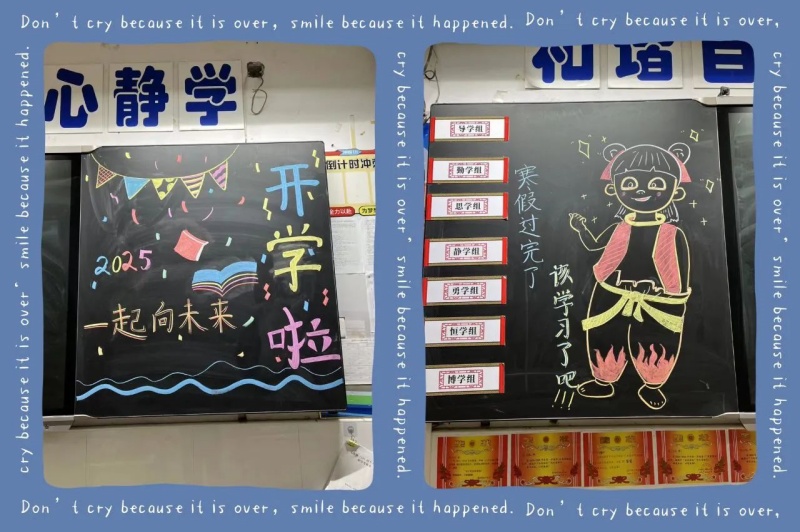 Don't cry because it is over, smile because it happened. Don't cry because it is over,
cry because it is over” smile because it happened.
cry because it is over” smile because it happened.
cry because it is over” smile because it happened.
心静学
倒计时冲
开学啦
2025
一起向未来
和谐
导学组
勤学组
思学组
静学组
勇学组
恒学组
博学组
寒假过完了
该学习了吧!!!
Don't cry because it is over, smile because it happened. Don't cry because it is over,